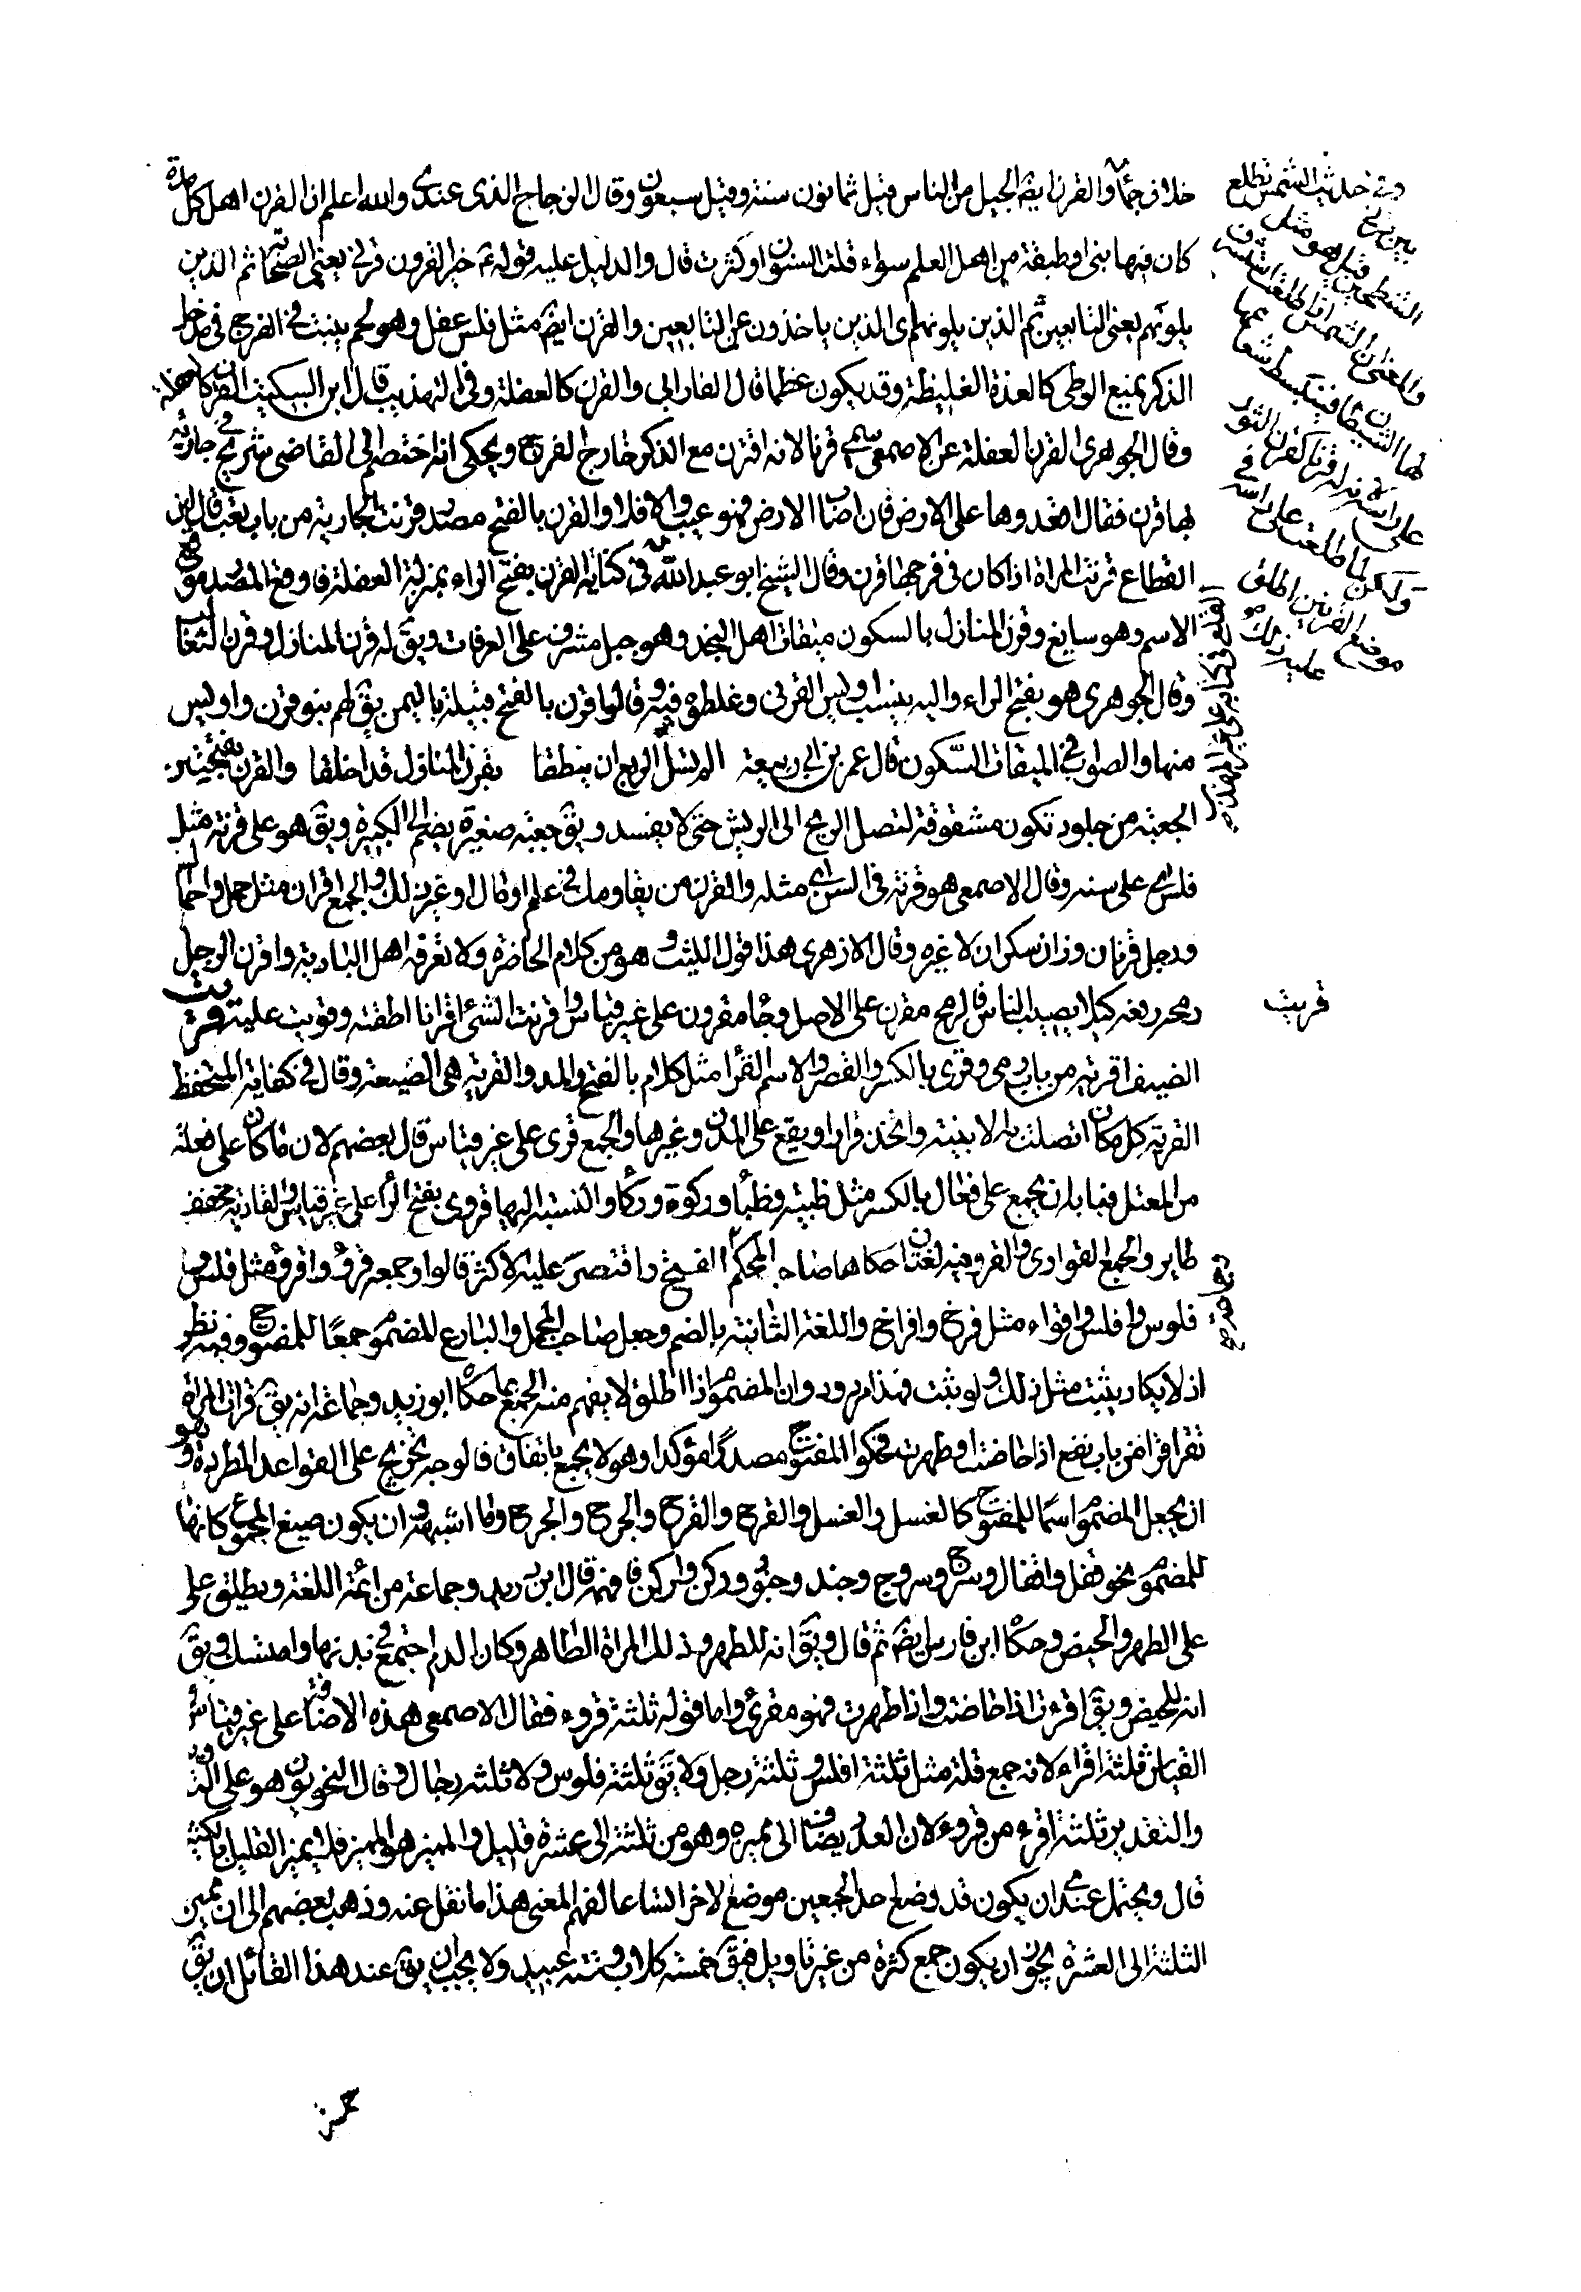 خلاف جماء والقرن ايضا الجيل من الناس قيل ثمانون سنة وقيل سبعون وقال الزجاج الذى عندى والله اعلم ان القرن اهل كل مدة
كان فيها نبى او طبقة من اهل العلم سواء قلت السنون او كثرت قال والدليل عليه قوله خير القرون قرنى يعنى الصحابة ثم الذين
يلونهم يعنى التابعين ثم الذين يلونهم اى الذين ياخذون عن التابعين والقرن ايضا مثل فلس عفل وهو لحم ينبت فى الفرج فى مدخل
الذكر يمنع الوطى كالغدة الغليظة وقد يكون عظما قال الفارابى والقرن كالعفلة وفى التهذيب قال ابن السكيت القرن كالعفلة
وقال الجوهرى القرن العفلة عن الاصمعى سمى قرنا لانه اقترن مع الذكر خارج الفرج ويحكى انه اختصم الى القاضى شريح فى جارية
بها قرن فقال اقعدوها على الارض فان اصاب الارض فهو عيب والا فلا والقرن بالفتح مصدر قرنت الجارية من باب تعب قال ابن
القطاع قرنت المراة اذا كان فى فرجها قرن وقال الشيخ ابو عبد الله فى كتابه القرن بفتح الراء بمنزلة العفلة فاوقع المصدر موقع
الاسم وهو سايغ وقرن المنازل بالسكون ميقات اهل النجد وهو جبل مشرف على العرفات ويق له قرن المنازل وقرن الثعالب
وقال الجوهرى هو بفتح الراء واليه ينسب اويس القرنى وغلطوه فيه وقالوا قرن بالفتح قبيلة باليمن يق لهم بنو قرن واويس
منها والصواب فى الميقات السكون قال عمر بن ابى ربيعة الم تسئل الربع ان ينطقا بقرن المنازل قد اخلقا والقرن بفتحتين
الجعبة من جلود تكون مشقوقة لتصل الريح الى الريش حتى لا يفسد ويق جعبة صغيرة يضم الى الكبيرة ويق هو على قرنه مثل
فلس اى على سنه وقال الاصمعى هو قرنه فى السن اى مثله والقرن من يقاومك فى علم او قتال او غير ذلك والجمع اقران مثل حمل واحمال
ورجل قرنان وزان سكران لا غيره وقال الازهرى هذا قول الليث وهو من كلام الحاضرة ولا تعرفه اهل البادية واقرن الرجل
رمحه رفعه كيلا يصيب الناس فالرمح مقرن على الاصل وجا مقرون على غير قياس واقرنت الشئ اقرانا اطقته وقويت عليه قريت
الضيف اقريه من باب رمى وقرى بالكسر والقصر والاسم القراء مثل كلام بالفتح والمد والقرية هى الضيعة وقال فى كفاية المتحفظ
القرية كل مكان اتصلت به الابنية واتخذ قرارا ويقع على المدن وغيرها والجمع قرى على غير قياس قال بعضهم لان ما كان على فعلة
من المعتل فبابه ان يجمع على فعال بالكسر مثل ظبية وظبا وركوة وركا والنسبة اليها قروى بفتح الرا على غير قياس والقارية مخفف
طاير والجمع القوارى والقرء فيه لغتان حكاها صاحب المحكم الفتح واقتصر عليه الاكثر قالوا وجمعه قروء واقرء مثل فلس
فلوس وافلس واقراء مثل فرخ وافراخ واللغة الثانية بالضم وجعل صاحب المجمل والبارع المضموم جمعا للمفتوح وفيه نظر
اذ لا يكاد يثبت مثل ذلك ولو ثبت فهذا مردود وان المضموم اذا اطلق لا يفهم منه الجمع بما حكاه ابو زيد وجماعة انه يق قرات المراة
تقرا قرا من باب نفع اذا حاضت او طهرت فحكوا المفتوح مصدرا مؤكدا وهو لا يجمع باتفاق فالوجه تخريج على القواعد المطردة وهو
ان يجعل المضموم اسما للمفتوح كالغسل والغسل والقرح والقرح والجرح والجرح وما اشبهه وان يكون صيغ المجموع كانها
للمضموم نحو قفل واقفال وبرج وبروج وجند وجنود وركن واركن فافهم قال ابن دريد وجماعة من ائمة اللغة ويطلق على
على الطهر والحيض وحكاه ابن فارس ايضا ثم قال ويق انه للطهر وذلك المراة الطاهر وكان الدم اجتمع فى بدنها وامتسك ويق
انه للحيض ويق اقرءت اذا حاضت واذا طهرت فهو مقرئ واما قوله ثلثة قروء فقال الاصمعى هذه الاضافة على غير قياس و
القياس ثلثة اقراء لانه جمع قلة مثل ثلثة افلس وثلثة رجل ولا يق ثلثة فلوس ولا ثلثة رجال وقال النحويون هو على
والتقدير ثلثة اقرء من قروء لان العدد يضاف الى مميزه وهو من ثلثة الى عشرة قليل والمميز هو المميز فلا يميز القليل بالكثير
قال ويحتمل عندى ان يكون قد وضع احد الجمعين موضع الاخر اتساعا لفهم المعنى هذا ما نقل عنه وذهب بعضهم الى ان مميز
الثلثة الى العشرة يجوز ان يكون جمع كثرة من غير تاويل فيق خمسة كلاب وستة عبيد ولا يجب ان يق عند هذا القائل ان يق
وفى حديث الشمس تطلع
بين قرنى
الشيطان قيل هو مثل
والمعنى ان الشمس اذا طلعت
لها الشيطان فيبسط شعاعها
على راسه قرنا كقرن الثور
ولكن لما طلعت على راسه فى
موضع القرنين اطلق
عليه ذلك
قريت